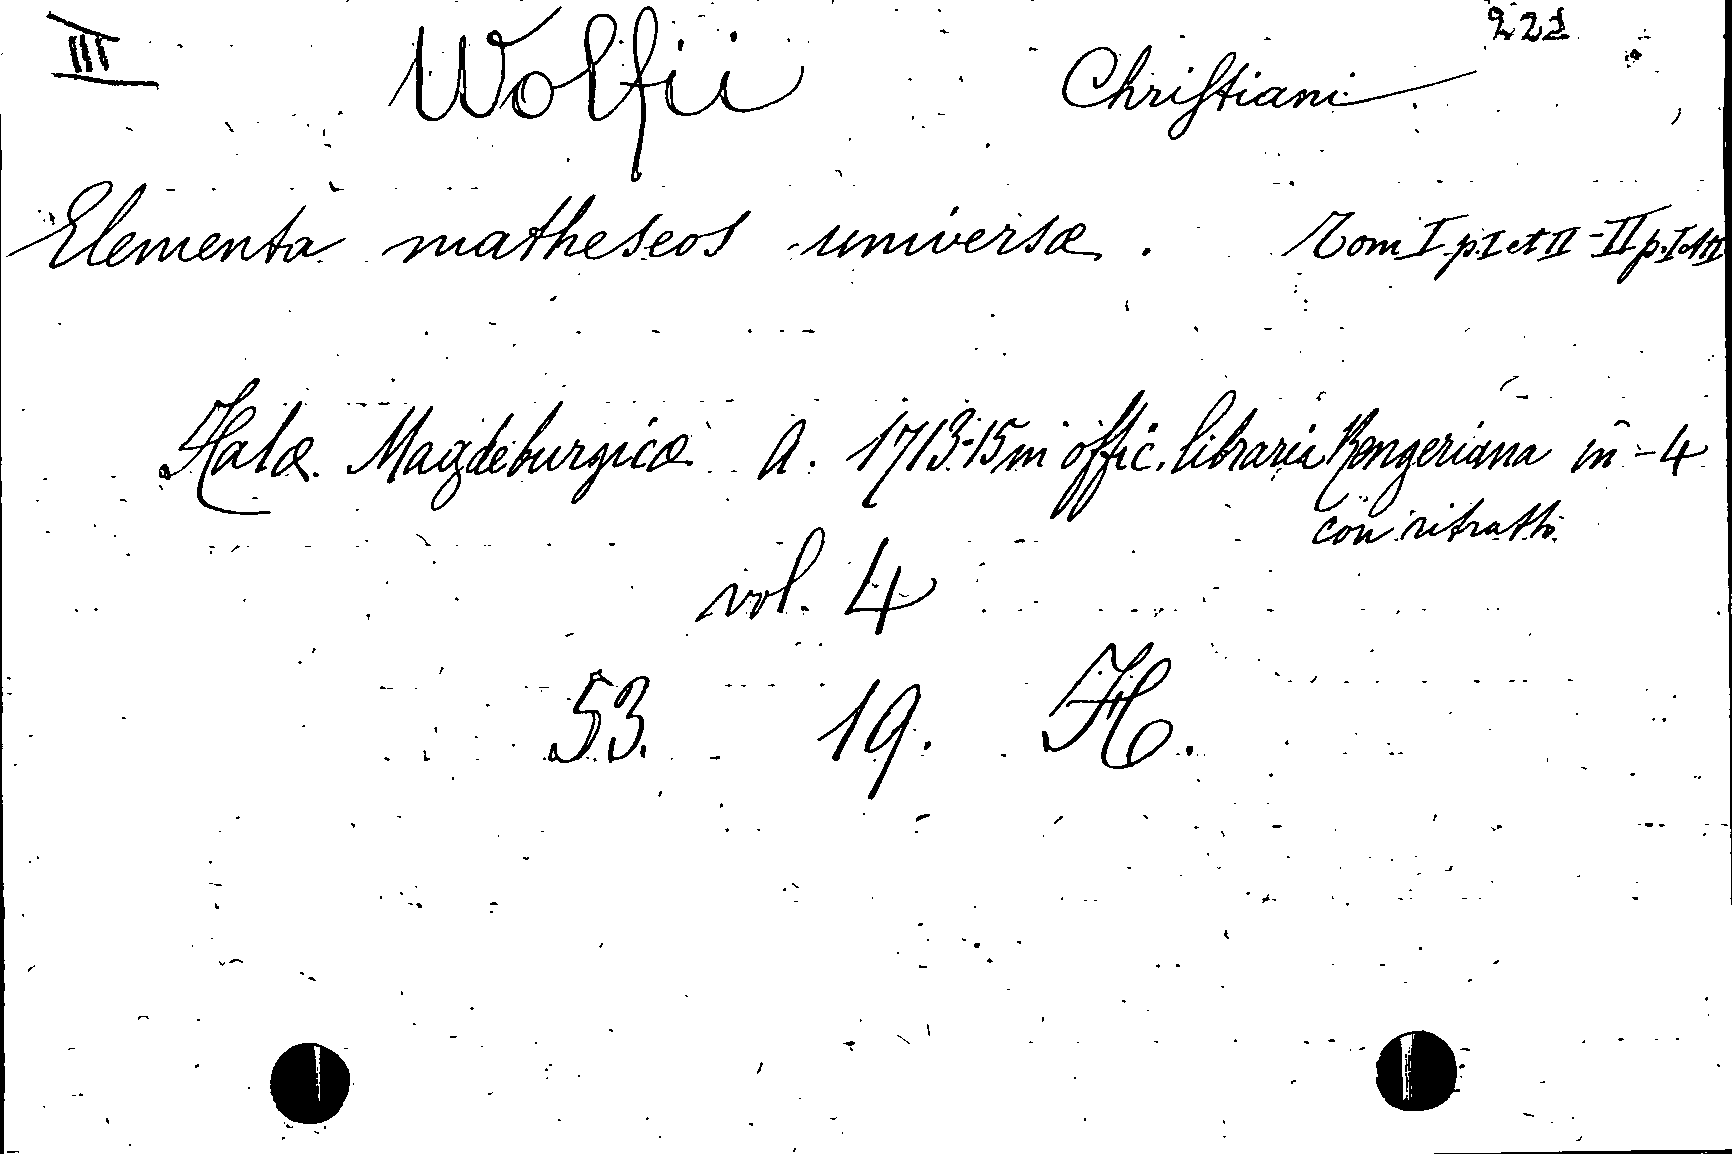 III Wolfii Christiani 221
Elementa matheseos universæ. Tom I p.I et II - II p.I et II
Halæ Magdeburgicæ A. 1713-15 in offic. libraria Rengeriana in-4
con ritratto
vol. 4
53. 19. H.